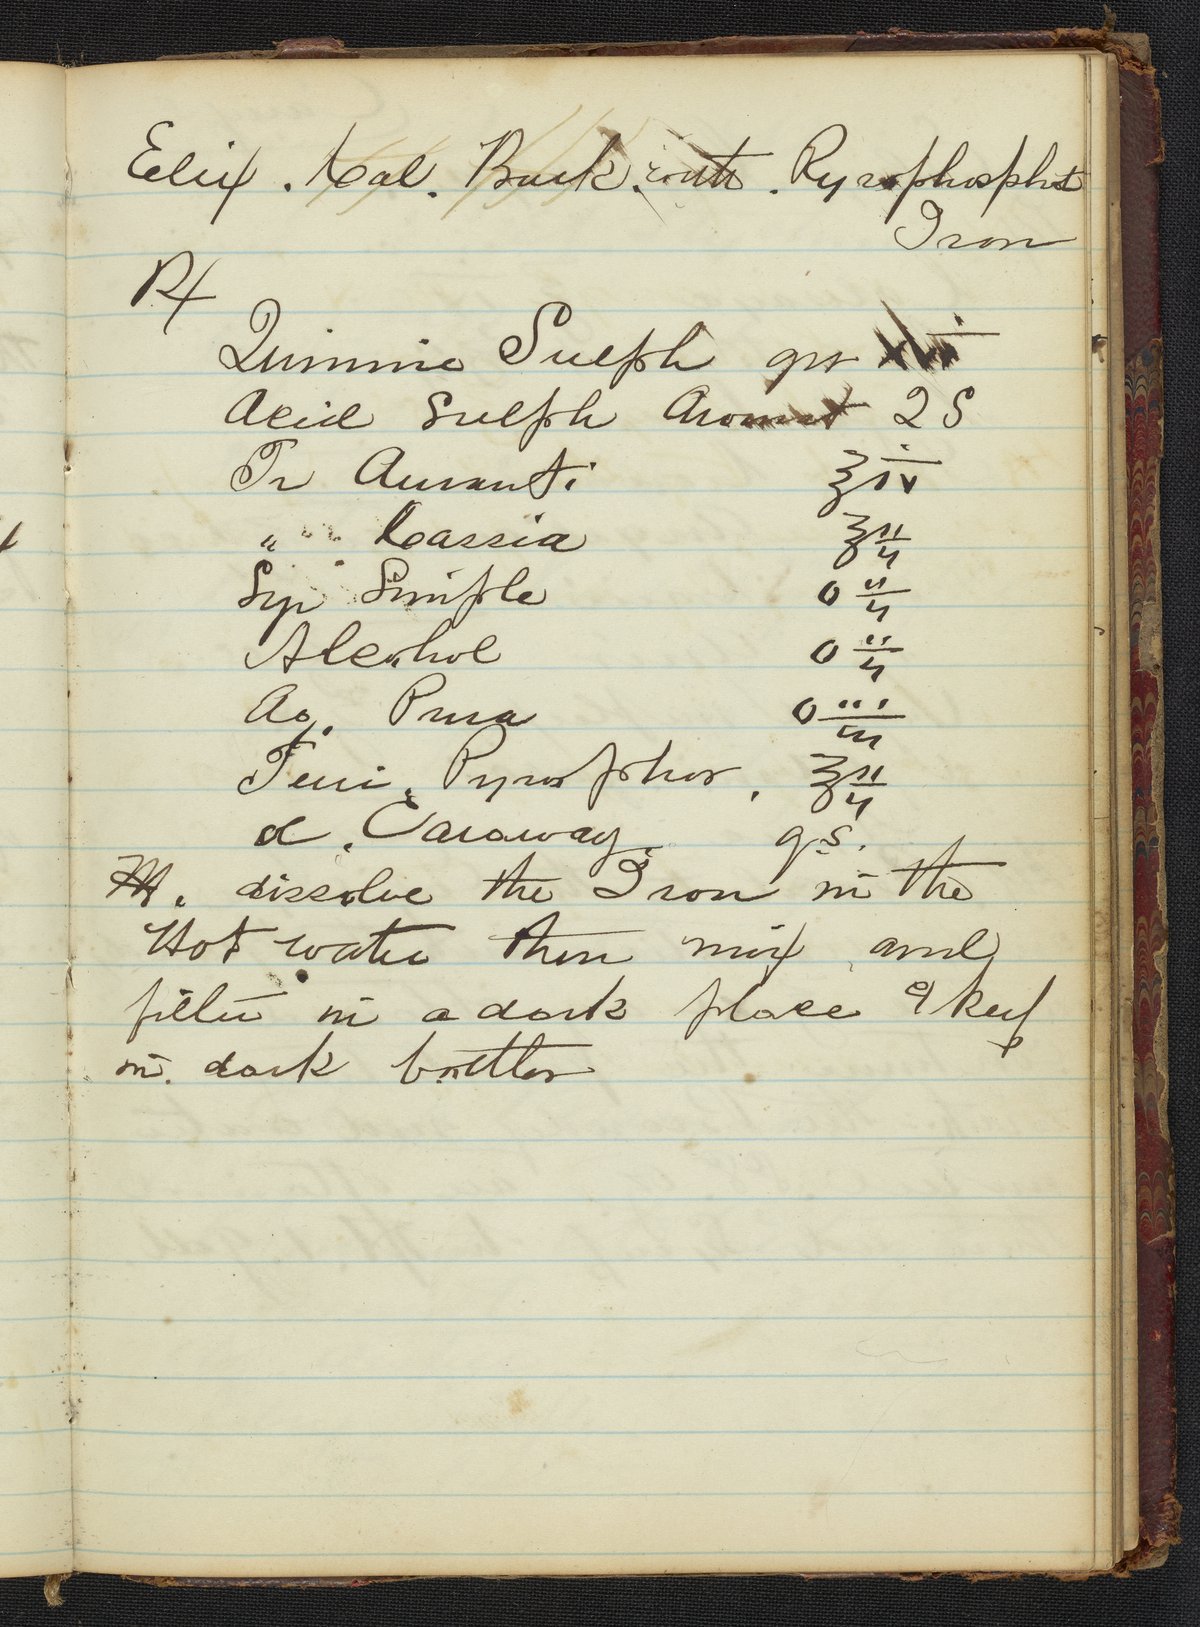 Elix. Cal. Bark. with. Pyrophosphat
Iron
Rx
Quinine Sulph grs
Acid Sulph Aromat QS
Tr Auranti ℥iv
" Cassia ℥ii
Syr Simple O ii
Alcohol O ii
Aq. Pura O iii
Ferri. Pyrophos. ℥ii
ol. Caraway. q.s.
M. dissolve the Iron in the
Hot water then mix and
filter in a dark place & keep
in dark bottles